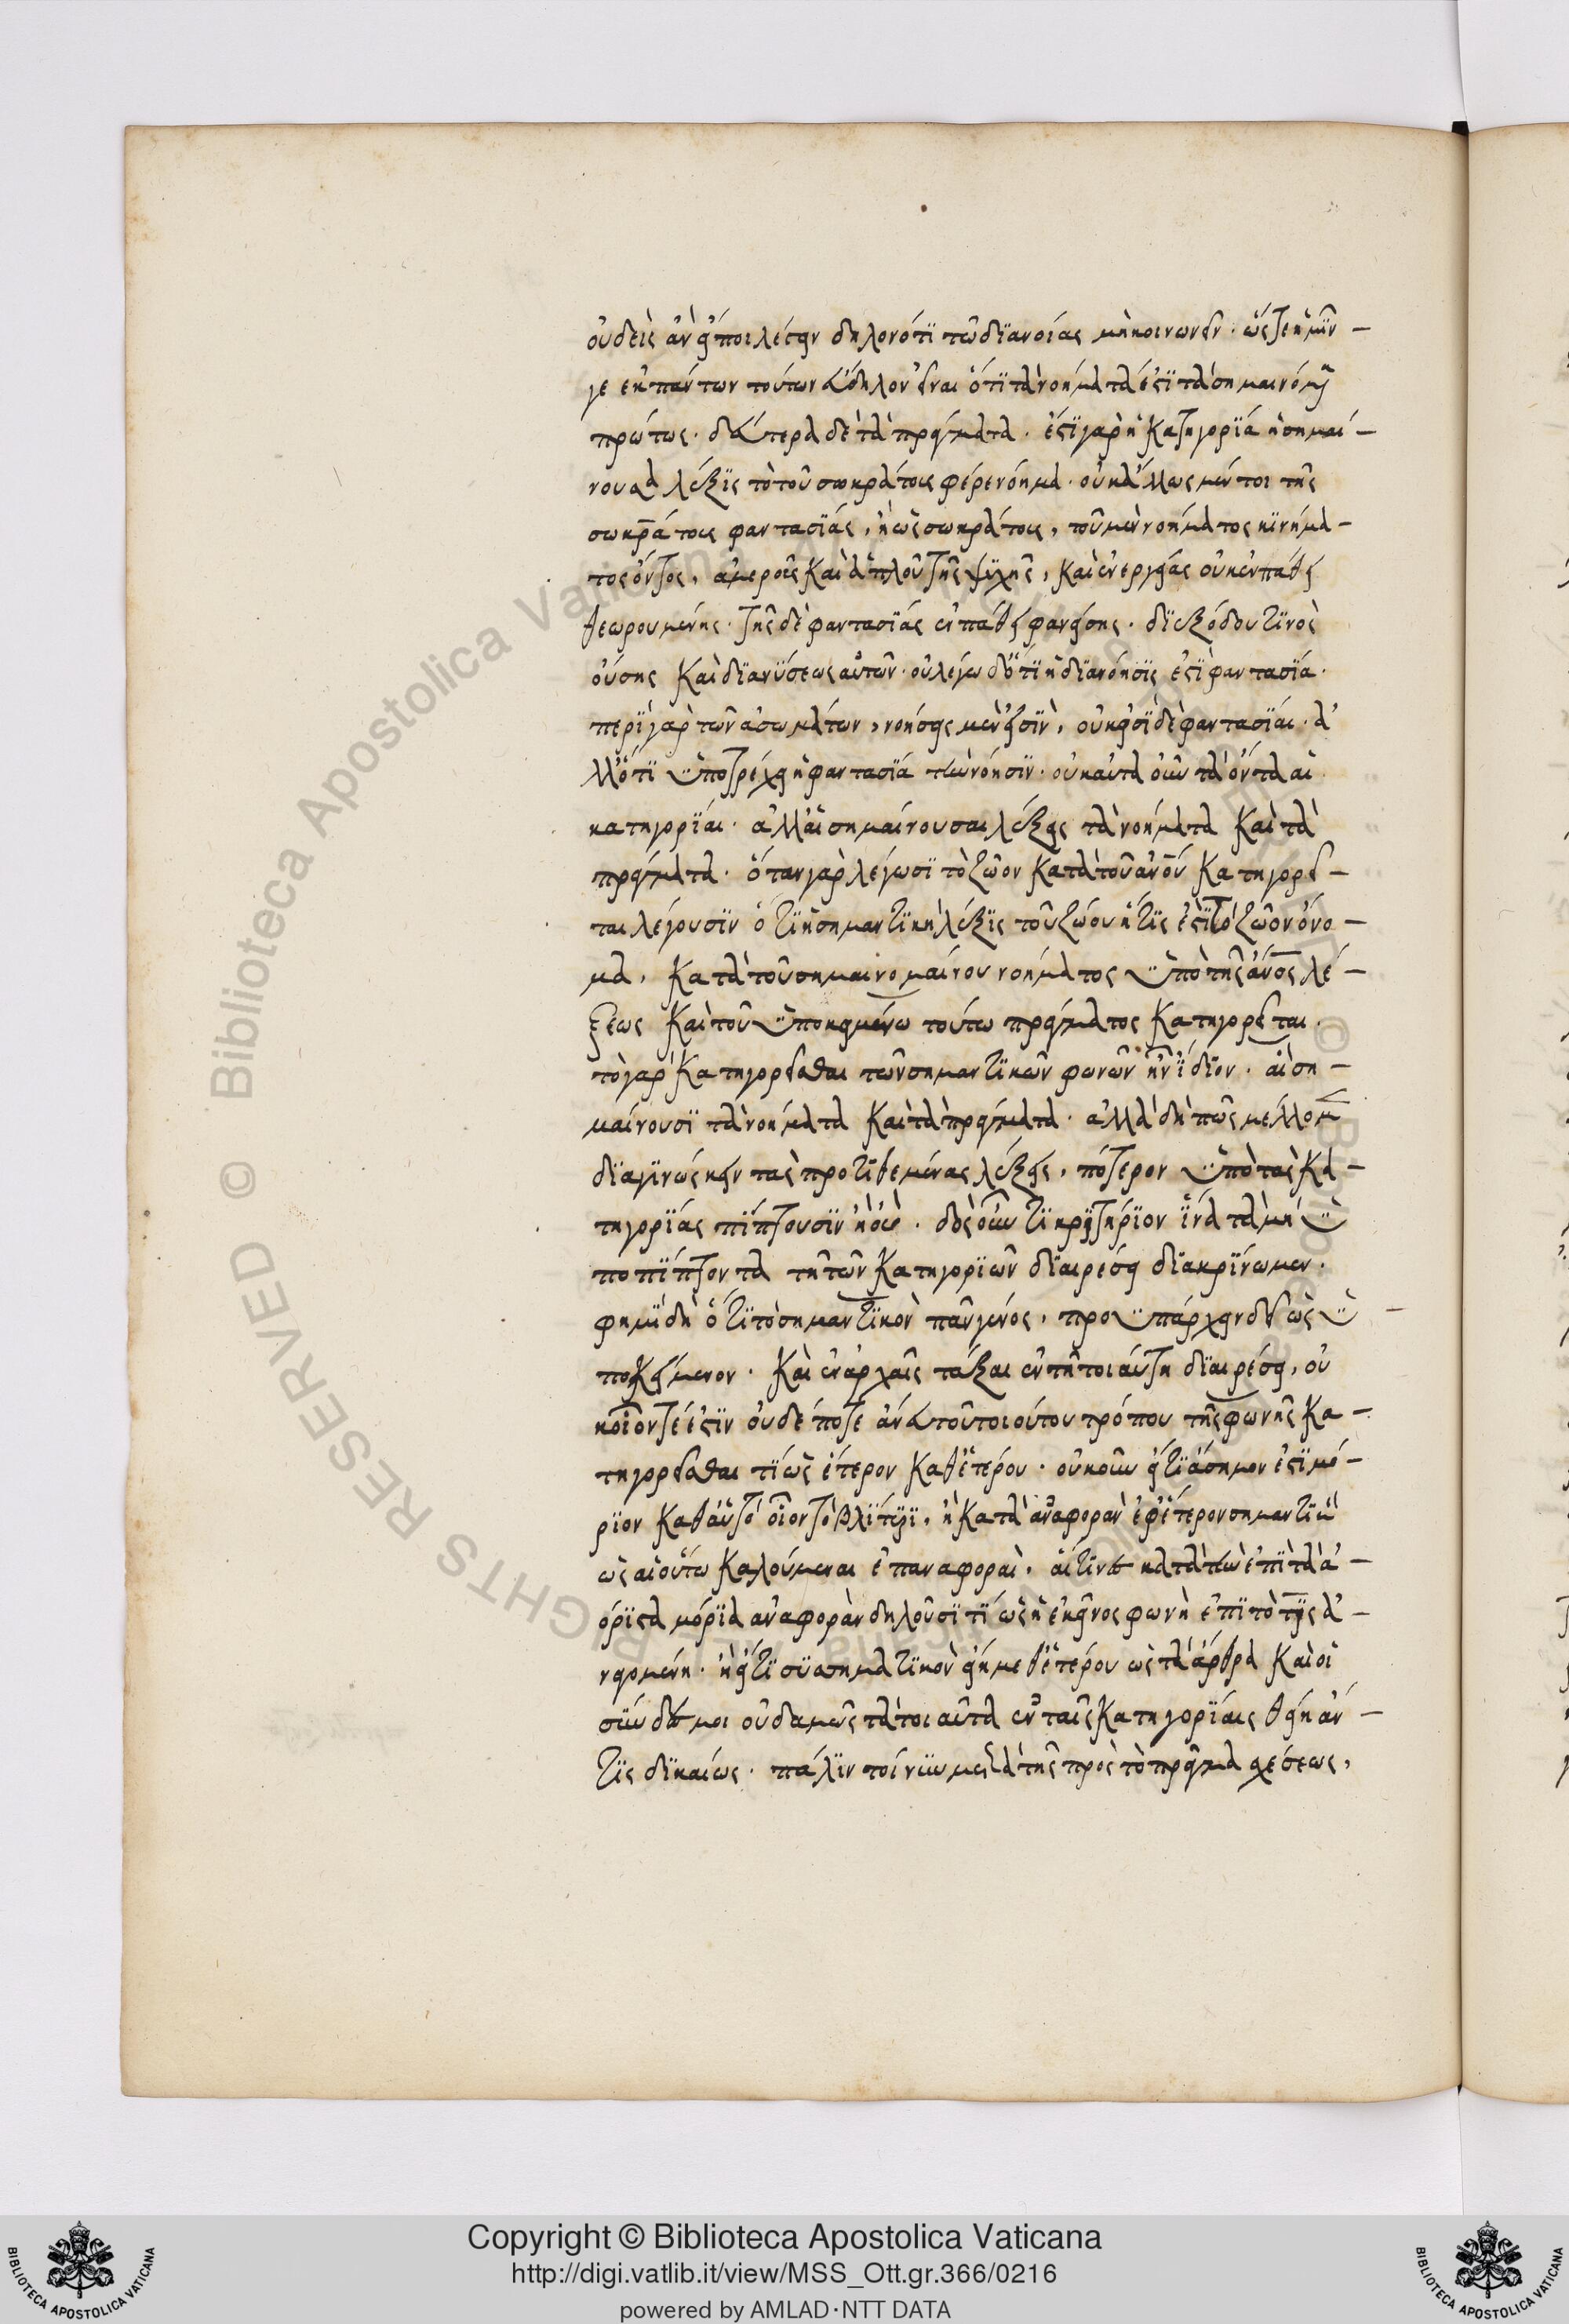 οὐδεὶς ἂν εἴποι λέγειν δηλονότϊ τῶ δϊανοίας μὴ κοινωνεῖν· ὥςτε ἡμῖν –
γε ἐκ πάντων τούτων εὔδηλον εἶναι ὅτϊ τὰ νοήματά ἐςϊ τὰ σημαινόμ
πρώτως· δεύτερα δὲ τὰ πράγματα· ἐςϊ γὰρ ἡ κατηγορϊά ἡ σημαί –
νουσα λέξϊς τὸ τοῦ σωκράτους φέρε νόημα· οὐκ ἄλλως μέντοι τῆς
σωκράτους φαντασϊάς, ἢ ὡς σωκράτους, τοῦ μὲν νοήματος κϊνήμα –
τος ὄντος, ἀμεροῦς καὶ ἁπλοῦ τῆς ψϋχῆς, καὶ ἐνεργείας οὐκ ἐν πάθει
θεωρουμένης· τῆς δὲ φαντασϊάς ἐν πάθει φανείσης· δϊεξόδου τϊνὸς
οὔσης καὶ δϊανϋσεως αὐτῶν· οὐ λέγω δὲ ὅτϊ ἡ δϊανόησϊς ἐςϊ φαντασϊα·
περϊ γὰρ τῶν ἀσωμάτων, νοήσεις μὲν εἰσϊν, οὐκ εἰσϊ δὲ φαντασϊαι· ἀ
λλ' ὅτϊ ὑποτρέχει ἡ φαντασϊά τὴν νόησϊν· οὐκ αὐτὰ οὖν τὰ ὄντα αἱ
κατηγορϊαι· ἀλλ' αἱ σημαίνουσαι λέξεις τὰ νοήματα καὶ τὰ
πράγματα· ὅταν γὰρ λέγωσϊ τὸ ζῶον κατὰ τοῦ ανου κατηγορεῖ –
ται λέγουσϊν ὅτϊ ἡ σημαντϊκὴ λέξϊς τοῦ ζώου ἥτϊς ἐςϊ τὸ ζῶον ὄνο –
μα, κατὰ τοῦ σημαινομαίνου νοήματος ὑπὸ τῆς ανος λέ –
ξεως καὶ τοῦ ὑποκειμένω τούτω πράγματος κατηγορεῖται·
τὸ γὰρ κατηγορεῖσθαι τῶν σημαντϊκῶν φωνῶν ἦν ϊδϊον· αἳ ση –
μαίνουσϊ τὰ νοήματα καὶ τὰ πράγματα· ἀλλὰ δὴ πῶς μέλλομ
δϊαγϊνώςκειν τὰς προτϊθεμένας λέξεις, πότερον ὑπὸ τὰς κα –
τηγορϊάς πϊπτουσϊν ἢ οὔ· δὸς οὖν τϊ κρϊτήρϊον ϊνα τὰ μὴ ὑ
ποπϊπτοντα τῆ τῶν κατηγορϊῶν δϊαιρέσει δϊακρϊνωμεν·
φημϊ δὴ ὅτϊ τὸ σημαντϊκὸν πᾶν γένος, προυπάρχειν δεῖ ὡς ὑ –
ποκείμενον· καὶ ἐν ἀρχαῖς τάξαι ἐν τῆ τοιαύτη δϊαιρέσει, οὐ
κ οἷόν τέ ἐςϊν οὐδέποτε ἄνευ τοῦ τοιούτου τρόπου τῆς φωνῆς κα –
τηγορεῖσθαι τϊ ὡς ἕτερον καθ' ἑτέρου· οὐκοῦν εἴ τϊ ἄσημον ἐςϊ μό –
ρϊον καθ' αὑτὸ οἷον τὸ βλϊτϋρϊ, ἢ κατὰ ἀναφορὰν ἐφ' ἕτερον σημαντϊκὸν
ὡς αἱ οὕτω καλούμεναι ἐπαναφοραὶ, αἵτϊνες κατὰ τὴν ἐπϊ τὰ ἀ –
όρϊςα μόρϊα ἀναφορὰν δηλοῦσϊ τϊ ὡς ἡ ἐκεῖνος φωνὴ ἐπϊ τὸ τϊς ἀ –
νφομένη· ἢ εἴ τϊ σϋσσημαντϊκὸν εἴη μεθ' ἑτέρου ὡς τὰ ἄρθρα καὶ οἱ
σϋνδεσμοι οὐδαμῶς τὰ τοιαῦτα ἐν ταῖς κατηγορϊαις θείη ἄν –
τϊς δϊκαίως· πάλϊν τοίνϋν μετὰ τῆς πρὸς τὸ πρᾶγμα σχέσεως,
Copyright © Biblioteca Apostolica Vaticana
http://digi.vatlib.it/view/MSS_Ott.gr.366/0216
powered by AMLAD·NTT DATA